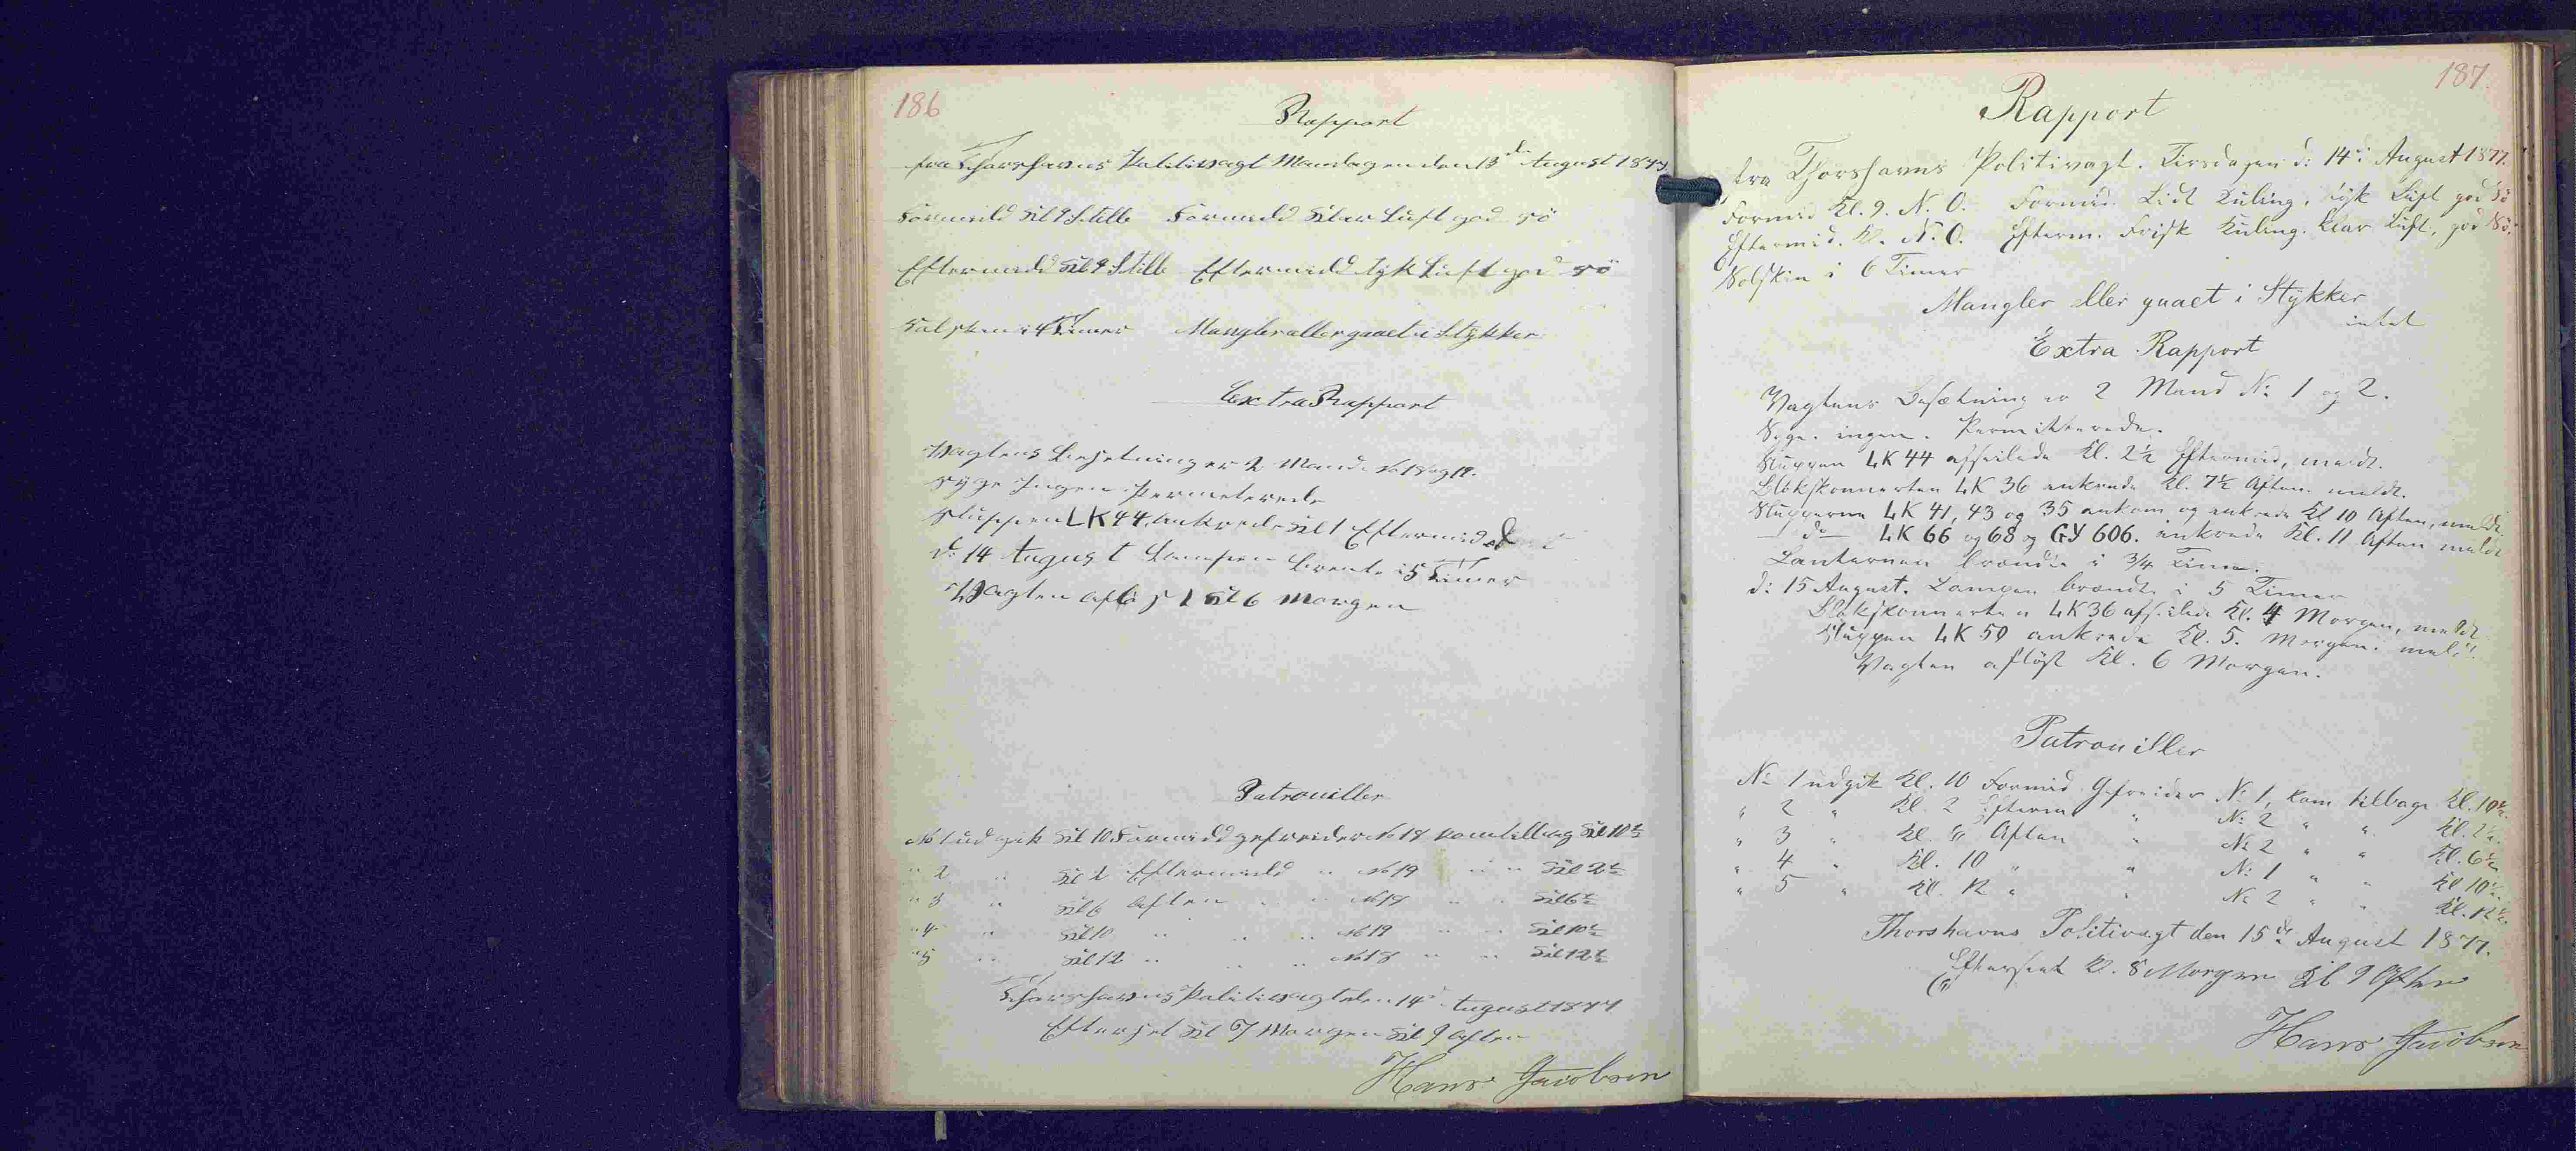 186
Rapport
fra Thorshavns Politivagt Mandagen den 13de August 1877
Formidd Kl 9 Stille Formidd Klar Luft god Sö
Eftermidd Kl 9 Stille Eftermidd tyk Luft god Sö
Solskin i 4 Timer Mangler eller gaaet i Stykker
Extra Rapport
Vagtens Besetning er 2 Mand No 18 og 19.
Syge Ingen Permeterede
Sluppen LK 44 Ankrede Kl 1 Eftermidd
d: 14 August Lampen Brente i 5 Timer
Vagten aflöst Kl 6 Morgen
Patrouiller
No 1 udgik Kl 10 Formidd gefreider No 18 kom tilbag Kl 10½
" 2 " Kl 2 Eftermidd " No 19 " " Kl 2½
" 3 " Kl 6 Aften " " No 18 " " Kl 6½
" 4 " Kl 10 " " " No 19 " " Kl 10½
" 5 " Kl 12 " " " No 18 " " Kl 12½
Thorshavns Politivagt den 14d August 1877
Efterset Kl 7 Morgen Kl 9 Aften
Hans Jacobsen
187
Rapport
fra Thorshavns Politivagt. Tirsdagen d: 14d August 1877.
Formid Kl. 9. N. O. Formid. Lidt Kuling, tyk Luft god Sö
Eftermid. Kl. N. O. Efterm. Frisk Kuling. Klar Luft, god Sö.
Solskin i 6 Timer
Mangler eller gaaet i Stykker
intet
Extra Rapport
Vagtens Besætning er 2 Mand No 1 og 2.
Syge. ingen. Permitterede.
Sluppen LK 44 afseilede Kl. 2½ Eftermid, meldt.
Dækskonnerten LK 36 ankrede Kl. 7½ Aften. meldt.
Slupperne LK 41, 43 og 35 ankom og ankrede Kl 10 Aften, meldt
do LK 66 og 68 og GY 606. ankrede Kl. 11 Aften meldt
Lanternen brændte i ¾ Time.
d: 15 August. Lampen brændte i 5 Timer
Dækskonnerten LK 36 afseilede Kl. 4 Morgen, meldt
Sluppen LK 50 ankrede Kl. 5. Morgen. meldt.
Vagten aflöst Kl. 6 Morgen.
Patrouiller
No 1 udgik Kl. 10 Formid Gefreider No 1, kom tilbage Kl. 10½.
" 2 " Kl. 2 Efterm " No 2 " " Kl. 2½.
" 3 " Kl. 6 Aften " No 2 " " Kl. 6½
" 4 " Kl. 10 " " No 1 " " Kl 10½.
" 5 " Kl. 12 " " No 2 " " Kl. 12½.
Thorshavns Politivagt den 15de August 1877.
Efterseet Kl. 8 Morgen Kl 9 Aften
Hans Jacobsen